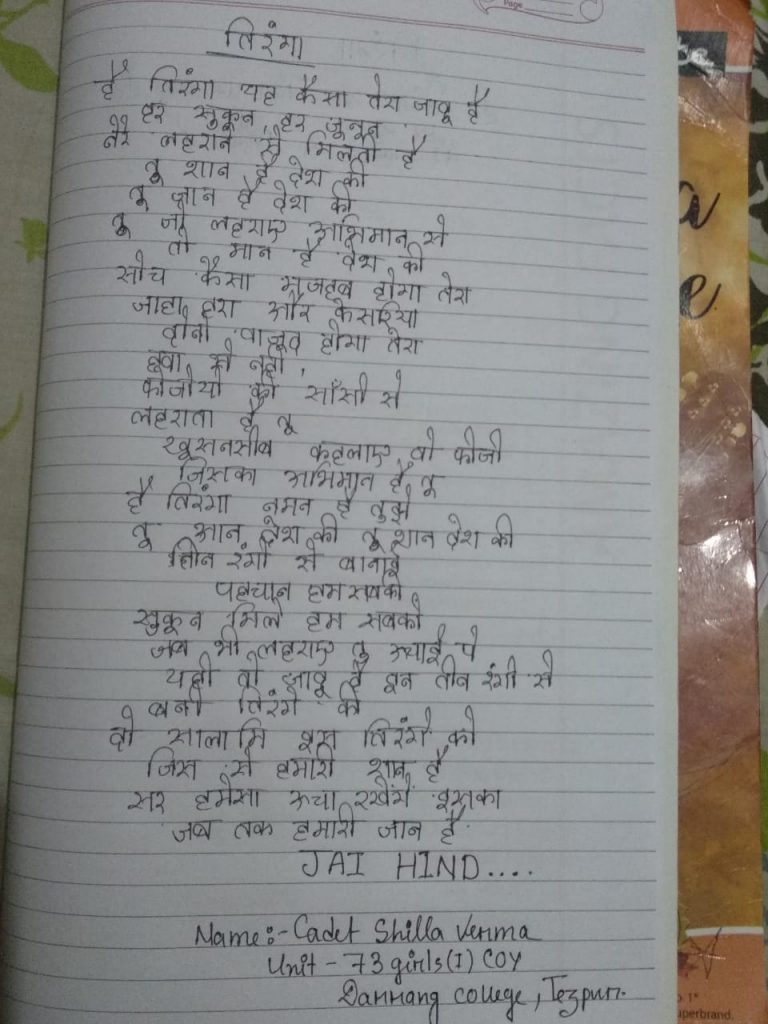 Page
तिरंगा
हे तिरंगा यह कैसा तेरा जादू है
हर सुकून, हर जुनून
तेरे लहराने से मिलती है
तू शान है देश की
तू जान है देश की
तू जो लहराए अभिमान से
तो मान है देश की
सोच कैसा मजहब होगा तेरा
जाहा हरा और केसरिया
दोनो वाजूद होगा तेरा
हवा से नही,
फोजीयो की साँसो से
लहराता है तू
खूसनसीब कहलाए वो फोजी
जिसका अभिमान है तू
है तिरंगा नमन है तुझे
तू आन देश की तू शान देश की
तिन रंगो से बानाई
पहचान हम सबकी
सुकून मिले हम सबको
जब भी लहराए तु ऊचाई पे
यही तो जादू है इन तीन रंगो से
बनी तिरंगे की
दो सालामि इस तिरंगे को
जिस से हमारी शान है
सर हमेसा ऊचा रखेंगे इसका
जब तक हमारी जान है
JAI HIND....
Name:- Cadet Shilla Verma
Unit - 73 girls (I) COY
Darrang College, Tezpur.
a
e
superbrand.